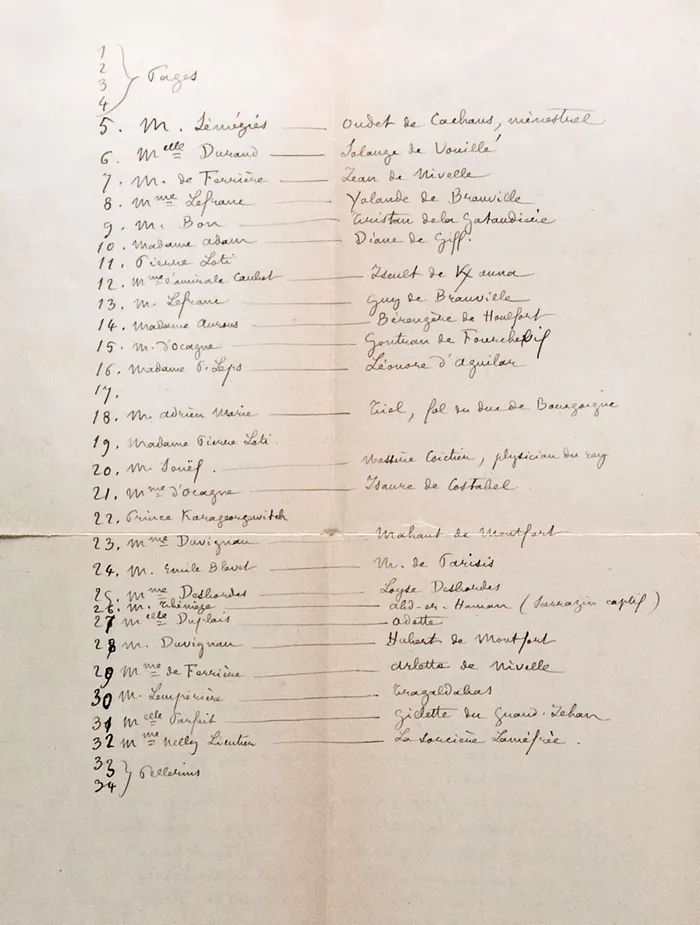 1
2
3 } Pages
4
5. M. Sémégiés — Oudet de Cachaus, ménestrel
6. Melle Durand — Solange de Vouillé
7. M. de Ferrière — Jean de Nivelle
8. Mme Lefranc — Yolande de Branville
9. M. Bon — Tristan de la Gataudière
10. Madame Adam — Diane de Giff.
11. Pierre Loti
12. Mme l'amirale — Iseult de
13. M. Lefranc — Guy de Branville
14. Madame — Bérengère de Honlfort
15. M. d'Ocagne — Gontran de
16. Madame P. Leps — Léonore d'Aguilar
17.
18. M. Adrien Marie — Triol, fol du duc de Bourgoigne
19. Madame Pierre Loti.
20. M. Jouëf. — Messire Coictier, physician du roy
21. Mme d'Ocagne — Isaure de Costabel.
22. Prince Karageorgevitch
23. Mme Duvignau — Mahaut de Montfort
24. M. Emile Blavet — M. de Parisis
25. Mme Desbordes — Loyse Desbordes
26. M. — Abd-er-Haman (Sarrazin captif)
27 Melle Duplais — Odette
28 M. Duvignau — Hubert de Montfort
29 Mme de Ferrière — Arlette de Nivelle
30 M. Lempérière — Tragaldabas
31 Melle Parfait — Gillette du Grand-Jehan
32 Mme Nelly Lieutier — La sorcière Laméfrée.
33 } Pellerins
34